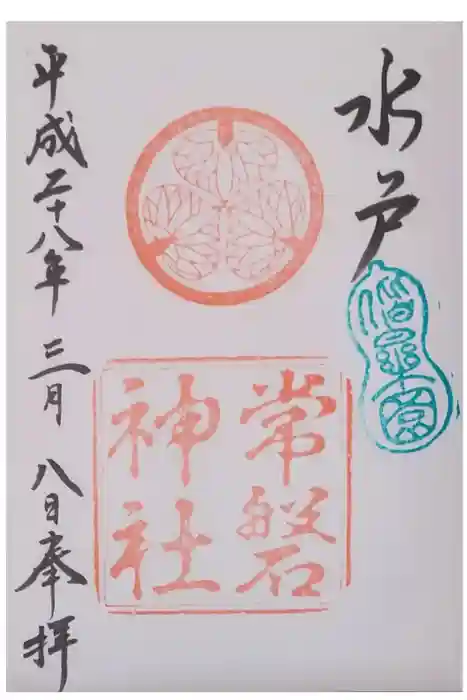 水戸
偕楽園
常磐
神社
平成二十八年 三月 八日 奉拝